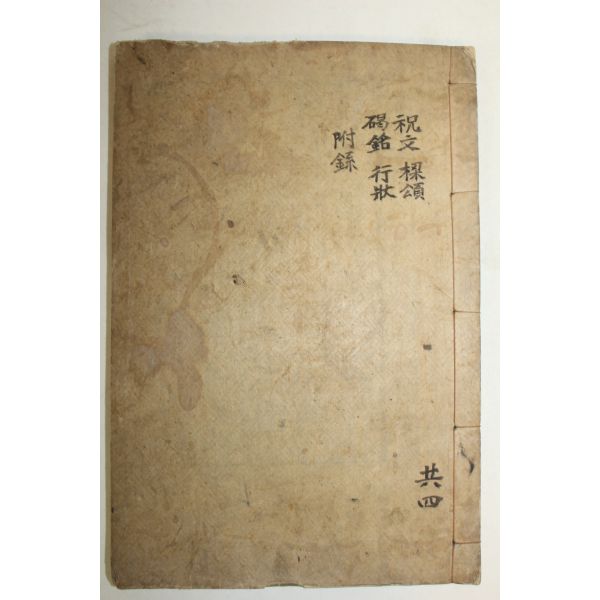 祝文 樑頌
碣銘 行狀
附錄
共四